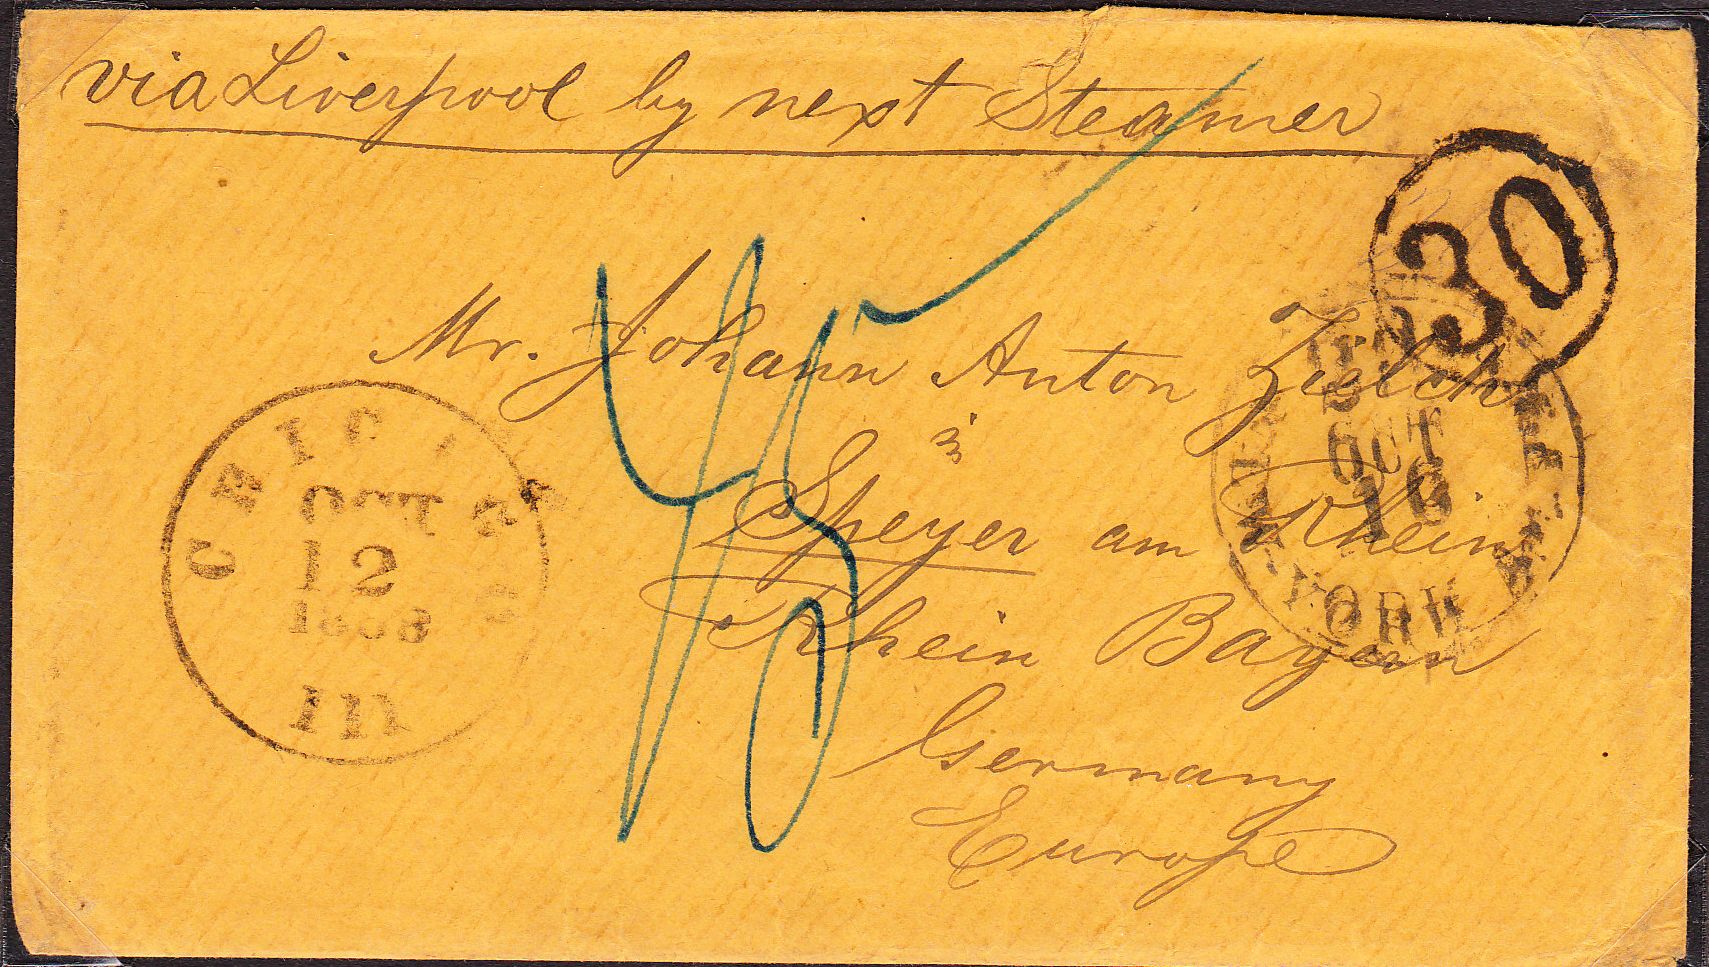 via Liverpool by next Steamer
30
Mr. Johann Anton Zielch
in
Speyer am Rhein
Rhein Bayern
Germany
Europe
45
OCT
12
OCT
16
YORK